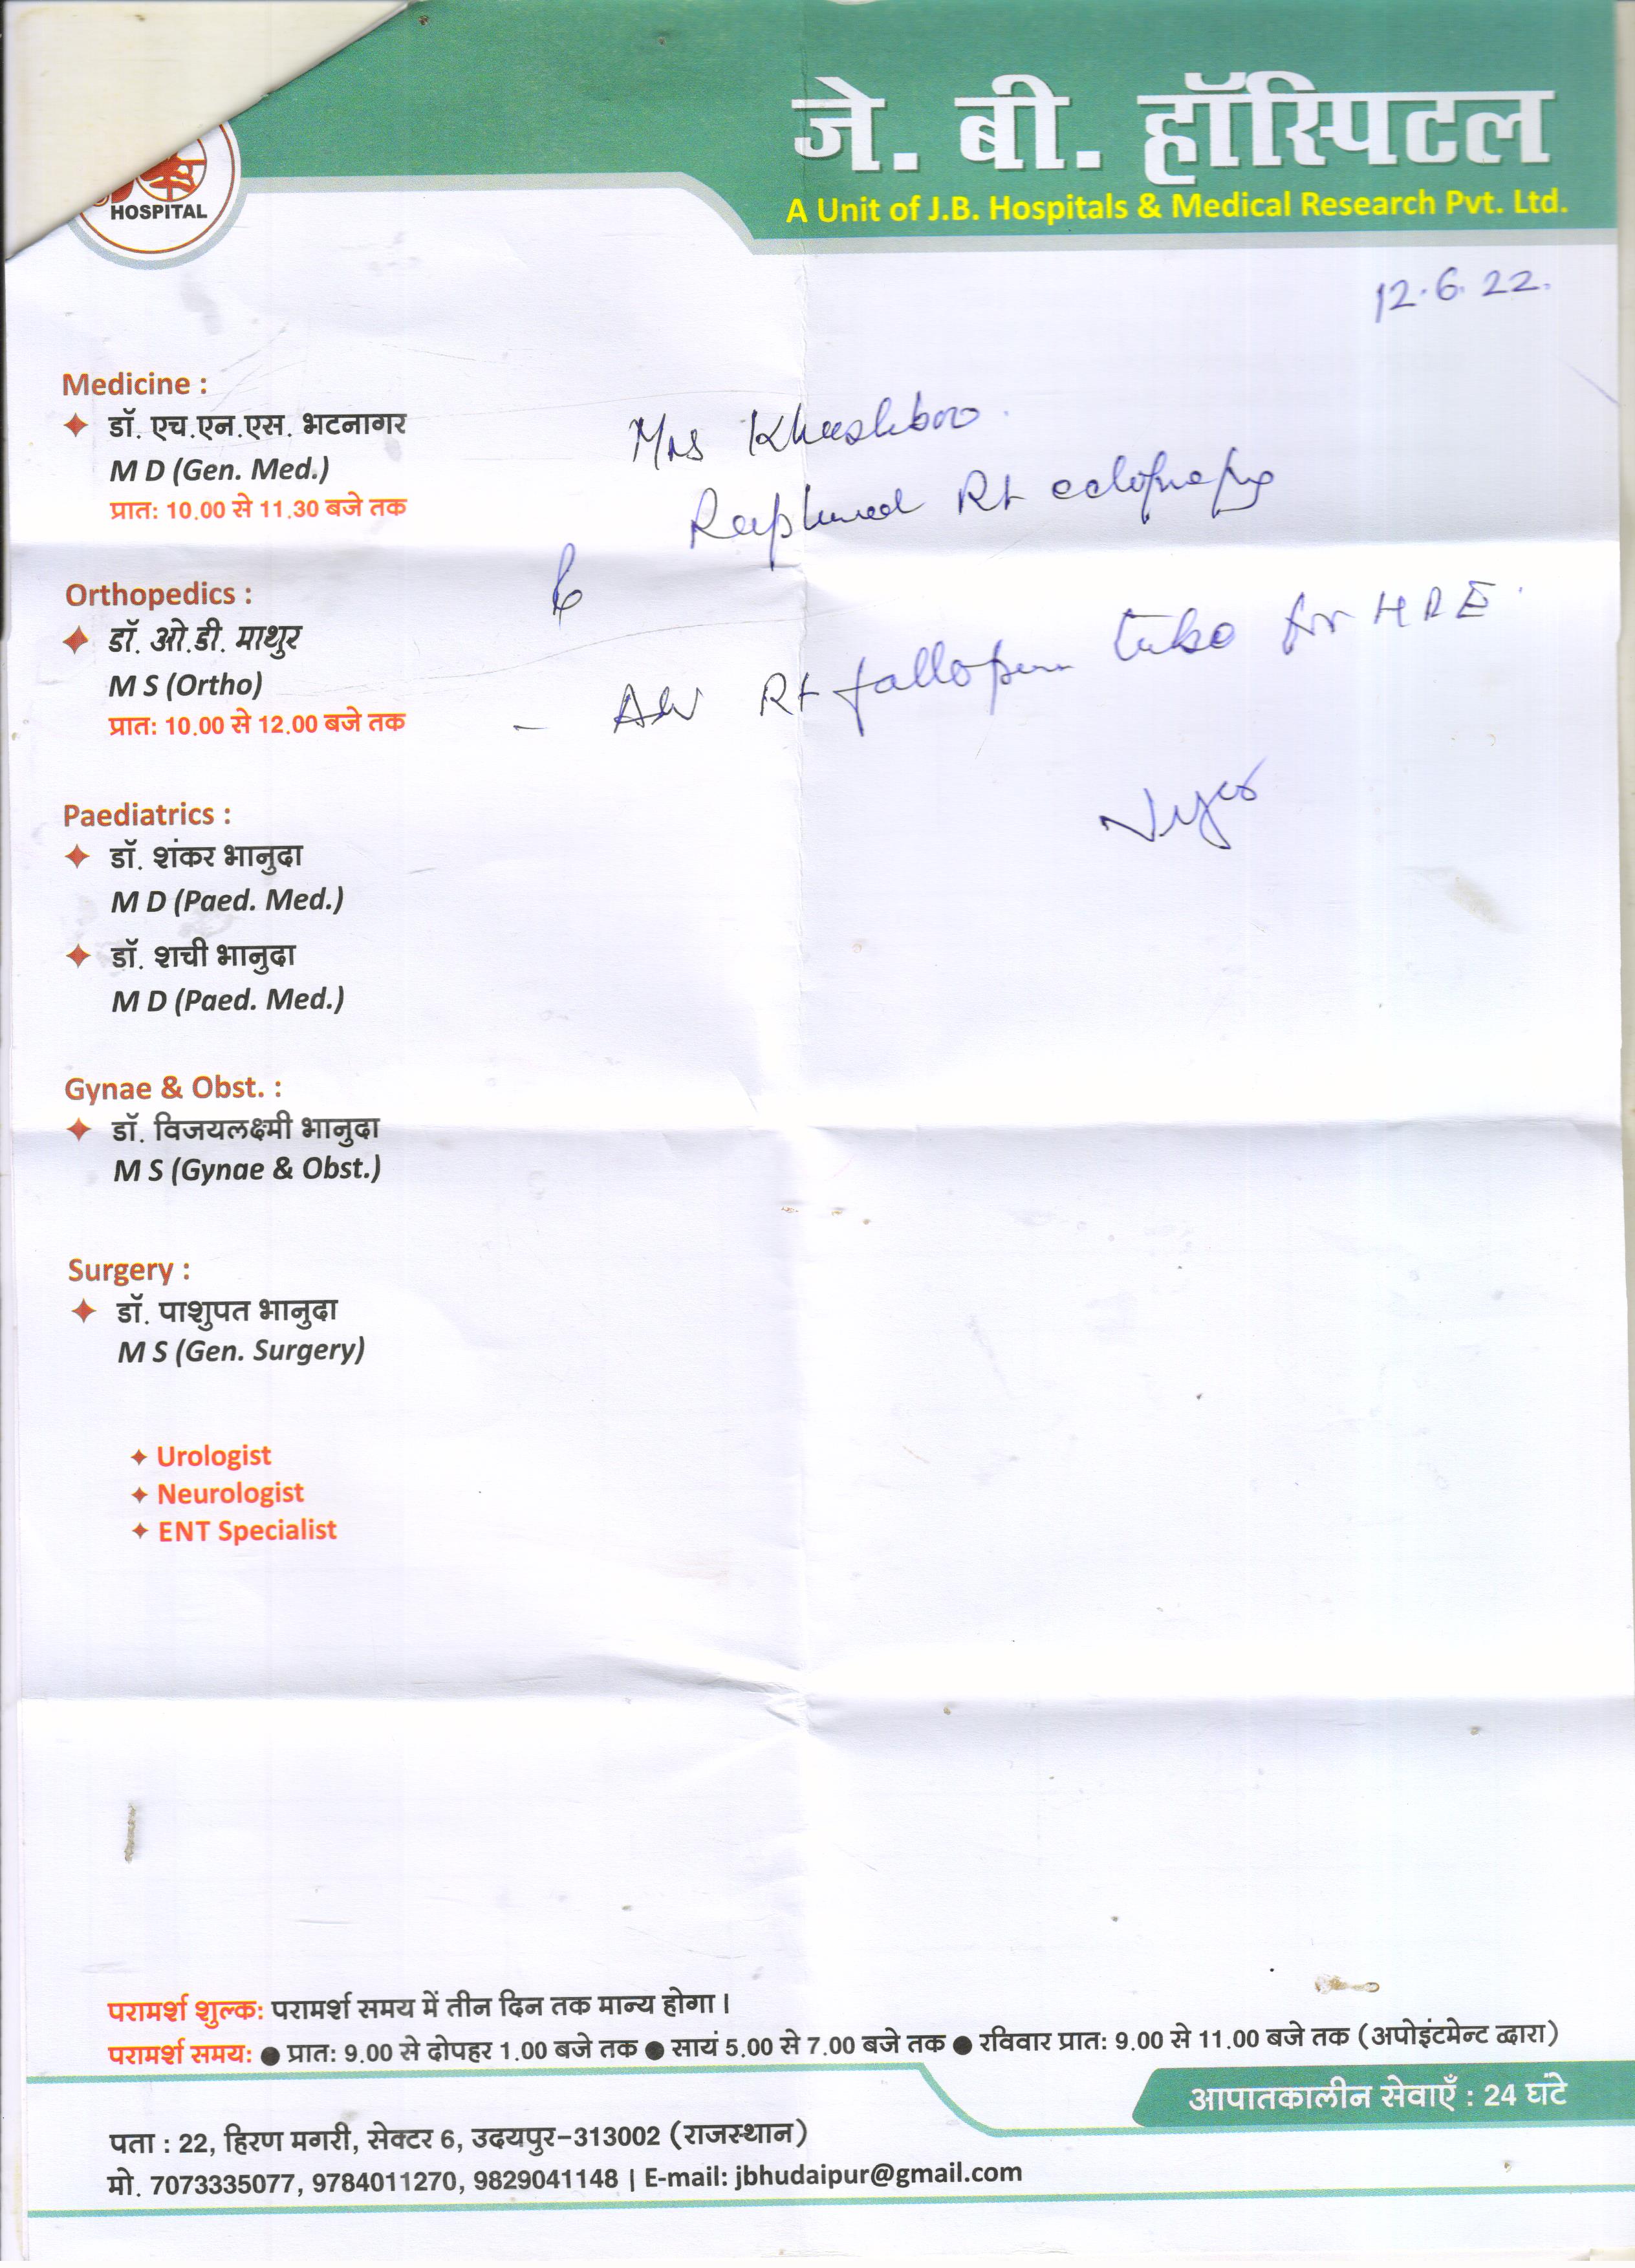 HOSPITAL
जे. बी. हॉस्पिटल
A Unit of J.B. Hospitals & Medical Research Pvt. Ltd.
12.6.22.
Medicine :
डॉ. एच.एन.एस. भटनागर
M D (Gen. Med.)
प्रात: 10.00 से 11.30 बजे तक
Mrs Khushboo
Ruptured Rt ectopic
Orthopedics :
डॉ. ओ.डी. माथुर
M S (Ortho)
प्रात: 10.00 से 12.00 बजे तक
- Adv Rt fallopian tube for HPE.
Paediatrics :
डॉ. शंकर भानुदा
M D (Paed. Med.)
डॉ. शची भानुदा
M D (Paed. Med.)
Gynae & Obst. :
डॉ. विजयलक्ष्मी भानुदा
M S (Gynae & Obst.)
Surgery :
डॉ. पाशुपत भानुदा
M S (Gen. Surgery)
Urologist
Neurologist
ENT Specialist
परामर्श शुल्क: परामर्श समय में तीन दिन तक मान्य होगा।
परामर्श समय: ● प्रात: 9.00 से दोपहर 1.00 बजे तक ● सायं 5.00 से 7.00 बजे तक ● रविवार प्रात: 9.00 से 11.00 बजे तक (अपोइंटमेन्ट द्वारा)
आपातकालीन सेवाएँ : 24 घंटे
पता : 22, हिरण मगरी, सेक्टर 6, उदयपुर-313002 (राजस्थान)
मो. 7073335077, 9784011270, 9829041148 | E-mail: jbhudaipur@gmail.com